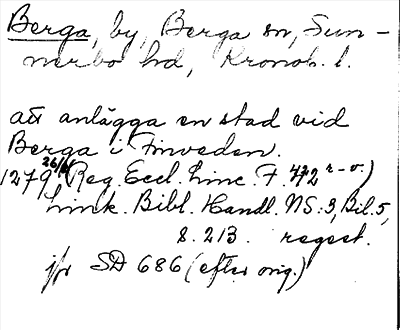 Berga, by, Berga sn, Sun-
nerbo hd, Kronob. l.
att anlägga en stad vid
Berga i Finveden.
1279 26/6 (Reg. Eccl. Linc. F. 472 r-v.)
Link. Bibl. Handl. NS:3, Bil. 5,
s. 213. regest.
jfr SD 686 (efter orig.)